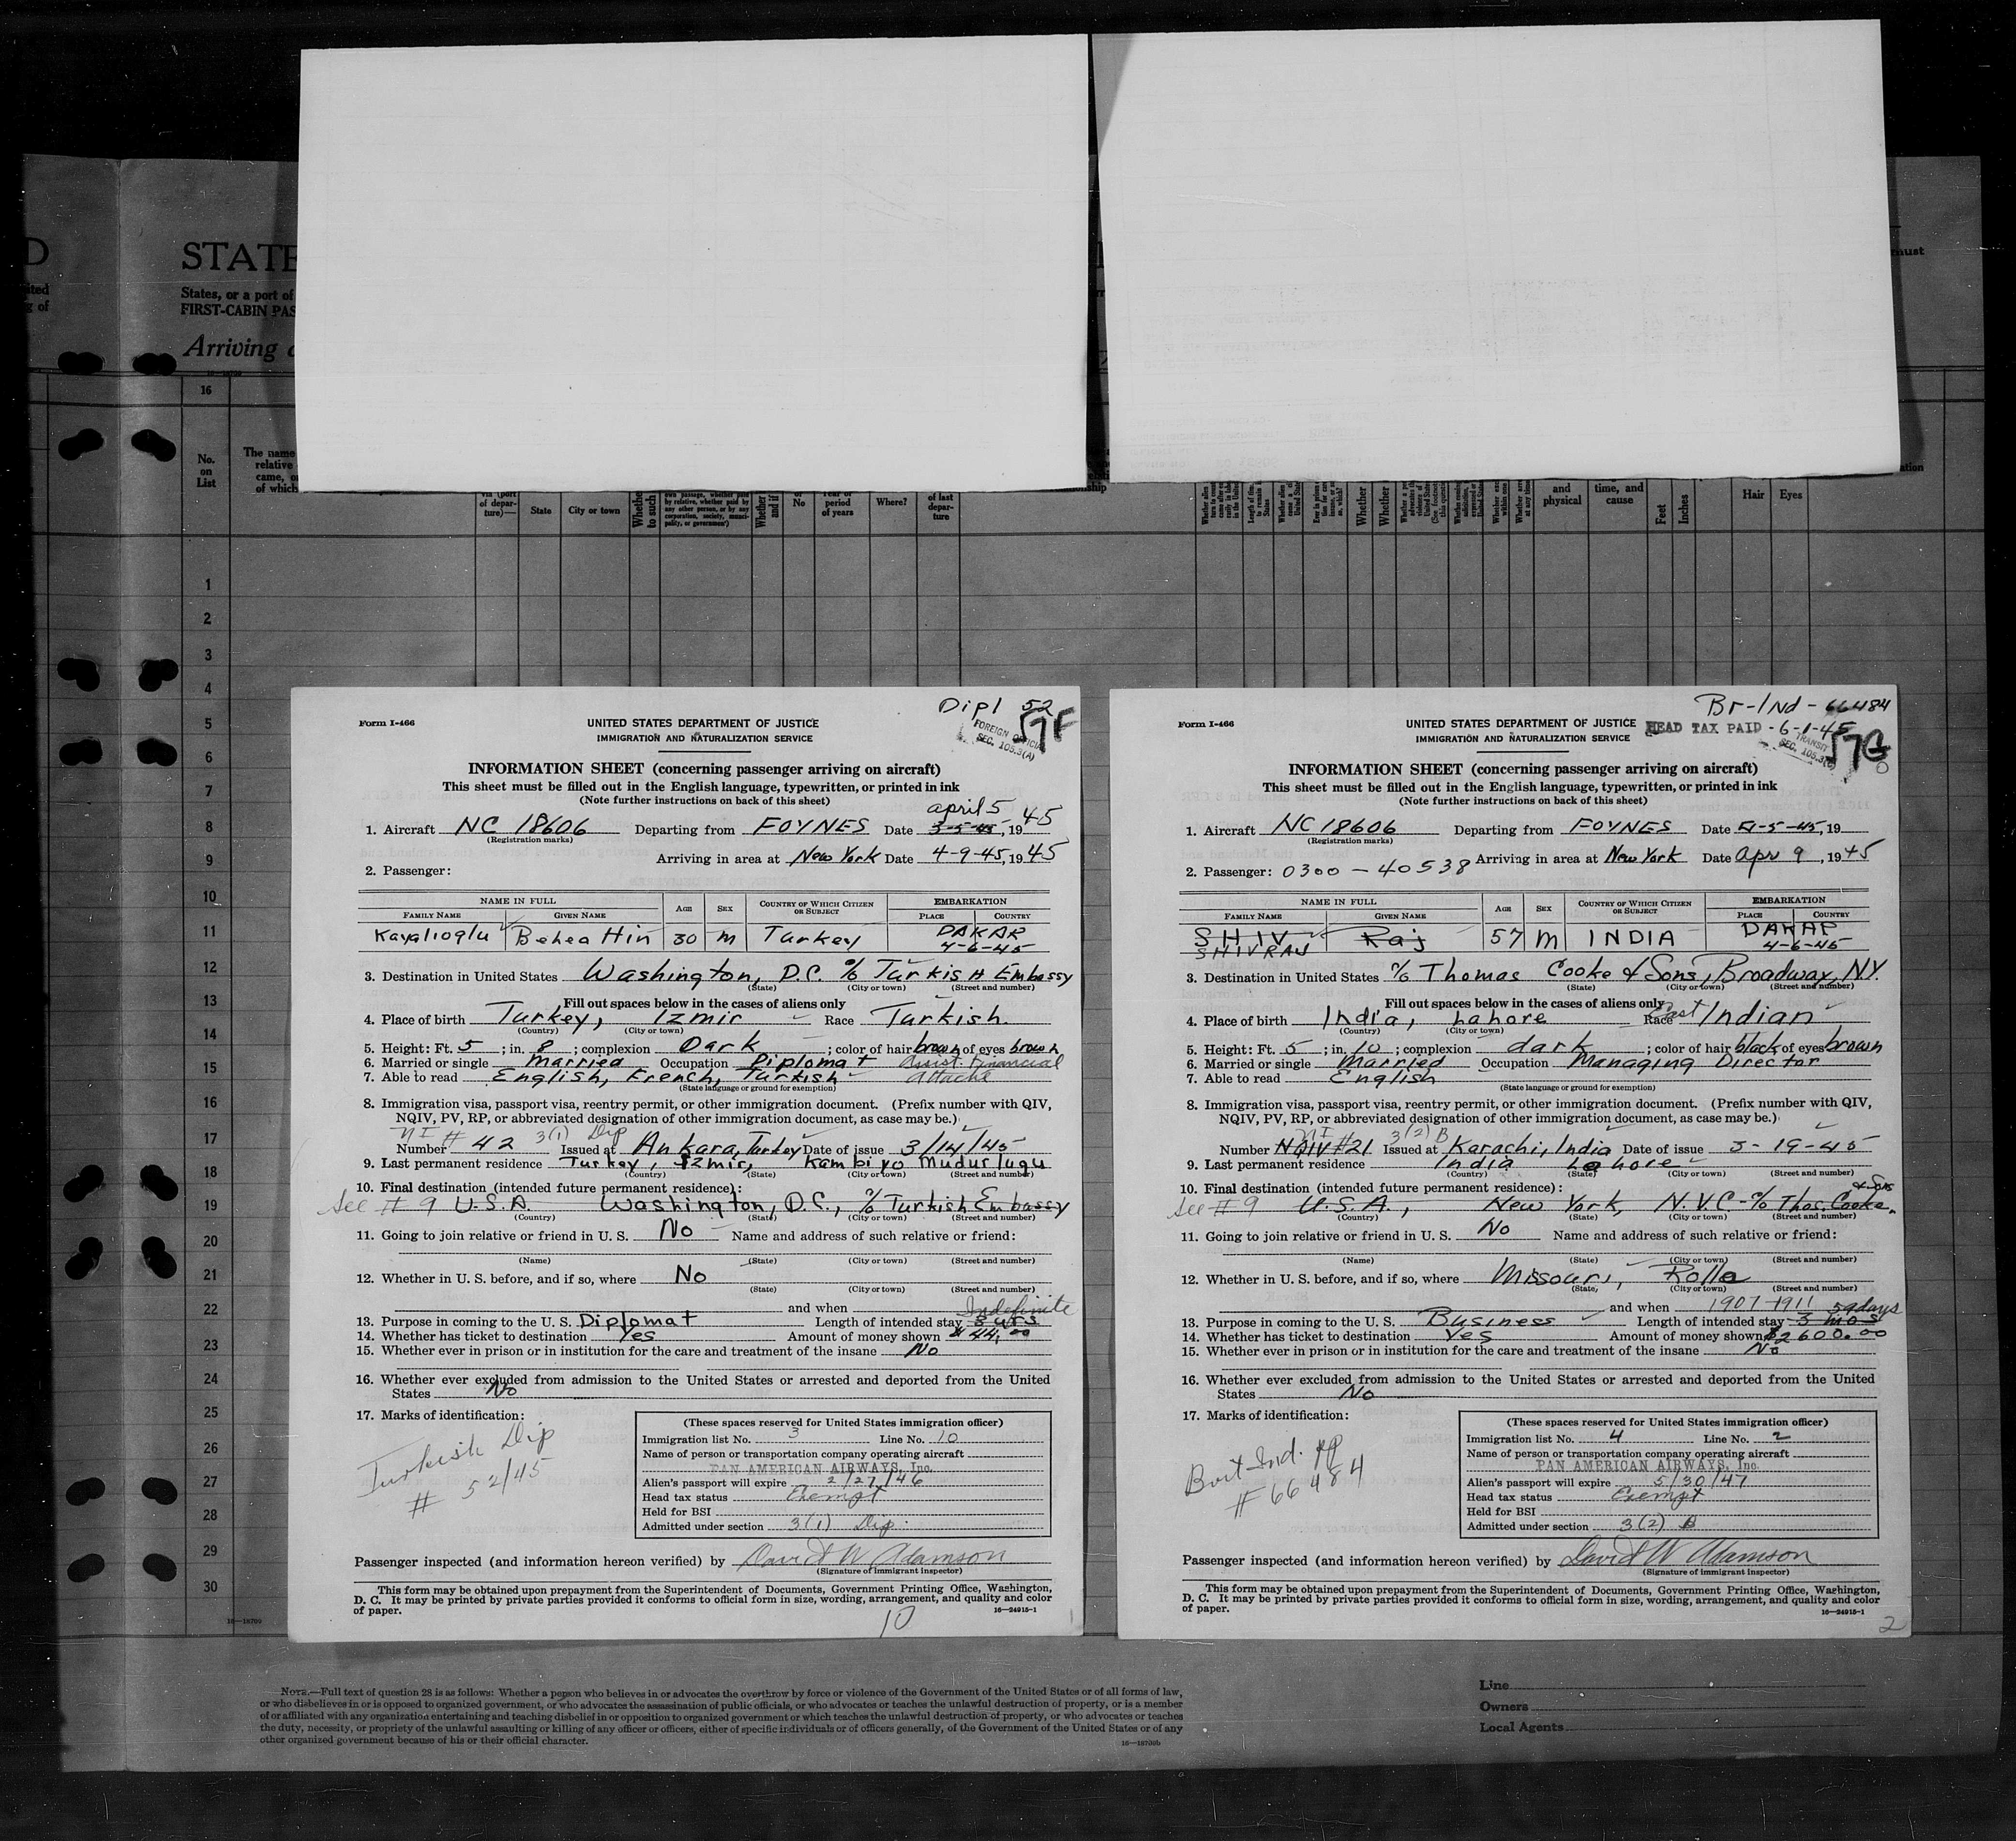 D
ited
g of
STATE
States, or a port of
FIRST-CABIN PAS
Arriving
must
16
No.
on
List
The name
relative
came, o
of which
via (port
of depar-
ture)—
State
City or town
Whether
to such
own passage, whether paid
by relative, whether paid by
any other person, or by any
corporation, society, munici-
pality, or government
Whether
and if
No
Year or
period
of years
Where?
of last
depar-
ture
Whether
Whether
and
physical
time, and
cause
Feet
Inches
Hair
Eyes
1
2
3
4
5
6
7
8
9
10
11
12
13
14
15
16
17
18
19
20
21
22
23
24
25
26
27
28
29
30
16—18709
Dipl 52
57F
FOREIGN OFFICIAL
SEC. 105.3(A)
Form I-466
UNITED STATES DEPARTMENT OF JUSTICE
IMMIGRATION AND NATURALIZATION SERVICE
INFORMATION SHEET (concerning passenger arriving on aircraft)
This sheet must be filled out in the English language, typewritten, or printed in ink
(Note further instructions on back of this sheet)
april 5
1. Aircraft NC 18606 Departing from FOYNES Date 3-5-45, 19 45
(Registration marks)
Arriving in area at New York Date 4-9-45, 19 45
2. Passenger:
NAME IN FULL
FAMILY NAME GIVEN NAME
AGE SEX COUNTRY OF WHICH CITIZEN OR SUBJECT
EMBARKATION
PLACE COUNTRY
Kayalioglu Behea Hin 30 M Turkey DAKAR
4-6-45
3. Destination in United States Washington, D.C. % Turkish Embassy
(State) (City or town) (Street and number)
Fill out spaces below in the cases of aliens only
4. Place of birth Turkey, Izmir Race Turkish.
(Country) (City or town)
5. Height: Ft. 5 ; in. 8 ; complexion Dark ; color of hair brown of eyes brown
6. Married or single Married Occupation Diplomat Assist. Financial
7. Able to read English, French, Turkish Attaché
(State language or ground for exemption)
8. Immigration visa, passport visa, reentry permit, or other immigration document. (Prefix number with QIV,
NQIV, PV, RP, or abbreviated designation of other immigration document, as case may be.)
NI 3(1) Dip
Number # 42 Issued at Ankara, Turkey Date of issue 3/14/45
9. Last permanent residence Turkey, Izmir, Kambiyo Mudurlugu
(Country) (State) (City or town) (Street and number)
10. Final destination (intended future permanent residence):
See # 9 U.S.A. Washington, D.C., % Turkish Embassy
(Country) (State) (City or town) (Street and number)
11. Going to join relative or friend in U. S. No Name and address of such relative or friend:
(Name) (State) (City or town) (Street and number)
12. Whether in U. S. before, and if so, where No
(State) (City or town) (Street and number)
and when Indefinite
13. Purpose in coming to the U. S. Diplomat Length of intended stay
14. Whether has ticket to destination Yes Amount of money shown $ 44.00
15. Whether ever in prison or in institution for the care and treatment of the insane No
16. Whether ever excluded from admission to the United States or arrested and deported from the United
States No
17. Marks of identification:
Turkish Dip
# 52/45
(These spaces reserved for United States immigration officer)
Immigration list No. 3 Line No. 10
Name of person or transportation company operating aircraft
PAN AMERICAN AIRWAYS, Inc.
Alien's passport will expire 2/27/46
Head tax status Exempt
Held for BSI
Admitted under section 3(1) Dip.
Passenger inspected (and information hereon verified) by David W Adamson
(Signature of immigrant inspector)
This form may be obtained upon prepayment from the Superintendent of Documents, Government Printing Office, Washington,
D. C. It may be printed by private parties provided it conforms to official form in size, wording, arrangement, and quality and color
of paper.
16—24915-1
10
Br-Ind - 66484
HEAD TAX PAID - 6-1-45
57G
TRANSIT
SEC. 105.3(C)
Form I-466
UNITED STATES DEPARTMENT OF JUSTICE
IMMIGRATION AND NATURALIZATION SERVICE
INFORMATION SHEET (concerning passenger arriving on aircraft)
This sheet must be filled out in the English language, typewritten, or printed in ink
(Note further instructions on back of this sheet)
1. Aircraft NC 18606 Departing from FOYNES Date 4-5-45, 19
(Registration marks)
Arriving in area at New York Date Apr 9, 1945
2. Passenger: 0300 - 40538
NAME IN FULL
FAMILY NAME GIVEN NAME
AGE SEX COUNTRY OF WHICH CITIZEN OR SUBJECT
EMBARKATION
PLACE COUNTRY
SHIV Raj 57 M INDIA DAKAR
SHIVRAJ 4-6-45
3. Destination in United States % Thomas Cooke & Sons, Broadway, N.Y.
(State) (City or town) (Street and number)
Fill out spaces below in the cases of aliens only
4. Place of birth India, Lahore Race East Indian
(Country) (City or town)
5. Height: Ft. 5 ; in. 10 ; complexion dark ; color of hair black of eyes brown
6. Married or single Married Occupation Managing Director
7. Able to read English
(State language or ground for exemption)
8. Immigration visa, passport visa, reentry permit, or other immigration document. (Prefix number with QIV,
NQIV, PV, RP, or abbreviated designation of other immigration document, as case may be.)
NI 3(2) B
Number NQIV #21 Issued at Karachi, India Date of issue 3-19-45
9. Last permanent residence India Lahore
(Country) (State) (City or town) (Street and number)
10. Final destination (intended future permanent residence): & Sons
See # 9 U.S.A., New York, N.Y.C. - % Thos. Cooke.
(Country) (State) (City or town) (Street and number)
11. Going to join relative or friend in U. S. No Name and address of such relative or friend:
(Name) (State) (City or town) (Street and number)
12. Whether in U. S. before, and if so, where Missouri, Rolla
(State) (City or town) (Street and number)
and when 1907 1911 59 days
13. Purpose in coming to the U. S. Business Length of intended stay 3 mos
14. Whether has ticket to destination Yes Amount of money shown $2600.00
15. Whether ever in prison or in institution for the care and treatment of the insane No
16. Whether ever excluded from admission to the United States or arrested and deported from the United
States No
17. Marks of identification:
Brit Ind. pp
# 66484
(These spaces reserved for United States immigration officer)
Immigration list No. 4 Line No. 2
Name of person or transportation company operating aircraft
PAN AMERICAN AIRWAYS, Inc.
Alien's passport will expire 5/30/47
Head tax status Exempt
Held for BSI
Admitted under section 3(2) B
Passenger inspected (and information hereon verified) by David W Adamson
(Signature of immigrant inspector)
This form may be obtained upon prepayment from the Superintendent of Documents, Government Printing Office, Washington,
D. C. It may be printed by private parties provided it conforms to official form in size, wording, arrangement, and quality and color
of paper.
16—24915-1
2
NOTE.—Full text of question 28 is as follows: Whether a person who believes in or advocates the overthrow by force or violence of the Government of the United States or of all forms of law,
or who disbelieves in or is opposed to organized government, or who advocates the assassination of public officials, or who advocates or teaches the unlawful destruction of property, or is a member
of or affiliated with any organization entertaining and teaching disbelief in or opposition to organized government or which teaches the unlawful destruction of property, or who advocates or teaches
the duty, necessity, or propriety of the unlawful assaulting or killing of any officer or officers, either of specific individuals or of officers generally, of the Government of the United States or of any
other organized government because of his or their official character.
16—18709b
Line
Owners
Local Agents